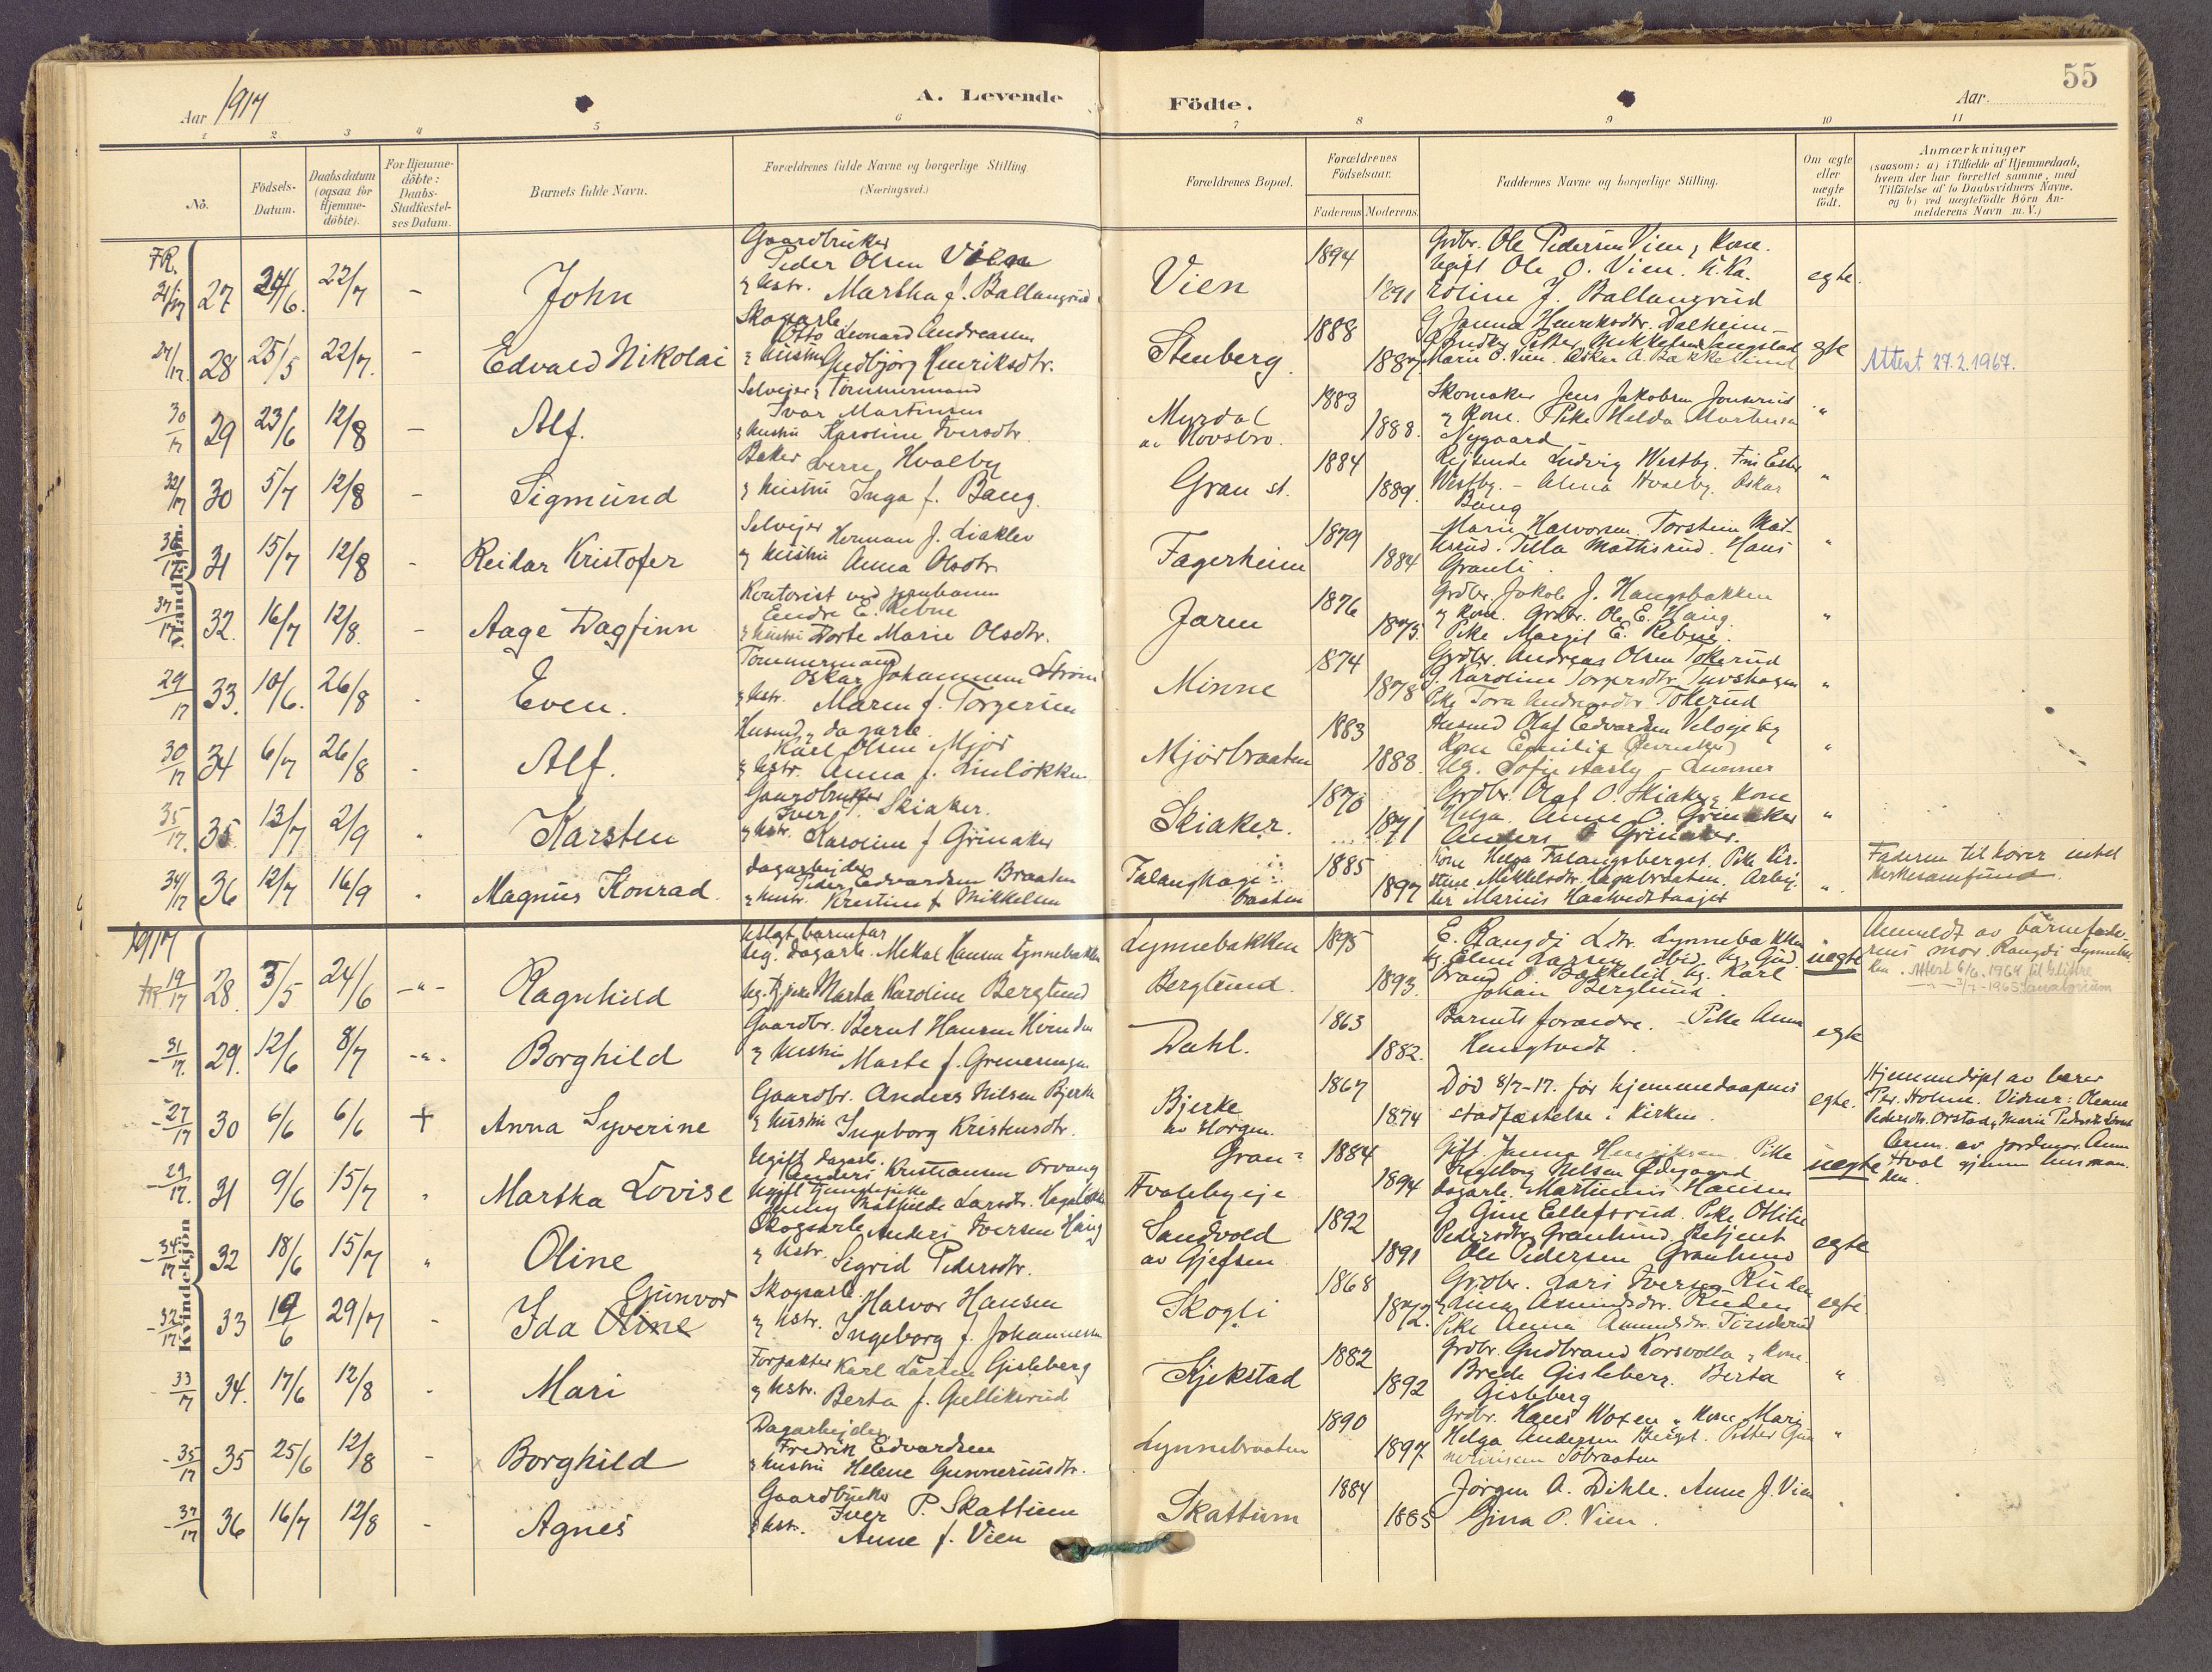 55
Aar 1917
A. Levende
Födte.
Aar.
1 2 3 4 5 6 7 8 9 10 11
No.
Födsels-Datum.
Daabsdatum (ogsaa for Hjemmedöbte).
For Hjemmedöbte: Daabs-Stadfæstelses Datum.
Barnets fulde Navn.
Forældrenes fulde Navne og borgerlige Stilling (Næringsvei.)
Forældrenes Bopæl.
Forældrenes Födselsaar.
Faderens Moderens
Faddernes Navne og borgerlige Stilling.
Om ægte eller uægte født.
Anmærkninger
(saasom: a) i Tilfælde af Hjemmedaab,
hvem der har forrettet samme, med
Tilføielse af to Daabsvidners Navne.
og b) ved uægtefödte Börn An-
melderens Navn m. V.)
Mandkjøn.
27 24/6. 22/7 - John
Gaardbruker
Peder Olsen Vien
& hstr. Martha f. Ballangrud
Vien 1894 1891
Grdbr. Ole Pedersen Vien & kone.
Ugift Ole O. Vien.
Eoline J. Ballangrud
egte.
28 25/5 22/7. - Edvald Nikolai
Skogarb.
Otto Leonard Andreasen
& hustru Gudbjørg Henriksdtr.
Stenberg. 1888 1887
G. Janna Henriksdtr. Dalheim
Marie O. Vien. Oskar A. Bakkelund
egte
Attest 27.2.1967.
29 23/6 12/8 - Alf.
Selveier & Tømmermand
Ivar Martinsen
& hustru Karoline Iversdtr.
Myrdal
av Hovsbro. 1883 1888.
Skomaker Jens Jakobsen Jonsrud
& kone. Pike Helda Martinsen
Nygaard
"
30 5/7 12/8 - Sigmund
Baker Sverre Hvalby
& hustru Inga f. Bang.
Gran st. 1884 1889.
Reisende Ludvig Westby. Fru Ester
Westby. - Alma Hvalby. Oskar
Bang
"
31 15/7 12/8 - Reidar Kristofer
Selveier Herman J. Liaklev
& hustru Anna Olsdtr.
Fagerheim 1879 1884
Marie Halvorsen, Torstein Mat-
tisrud. Tilla Mattisrud. Hans
Granli.
"
32. 16/7 12/8. - Aage Dagfinn
Kontorist ved jernbanen
Endre E. Rebne
& hustru Dorte Marie Olsdtr.
Jaren 1876 1875.
Grdbr. Jakob J. Haugsbakken
& kone. Grdbr. Ole E. Haug.
Pike Margit E. Rebne.
"
33. 10/6. 26/8 - Even.
Tømmermand
Oskar Johannesen Strøm
& hstr. Maren f. Torgersen
Minne 1874 1878
Grdbr. Andreas Olsen Tokerud
G. Karoline Torgersdtr.
Pike Tora Andreasdtr. Tokerud
"
34 6/7 26/8 - Alf.
Husmd. & dagarb.
Karl Olsen Mjør
& hstr. Anna f. Linløkken
Mjørbraaten 1883 1888.
Husmd Olaf Edvardsen
Kone Emilie
Ug. Sofie Aasly - Lunner
"
35 13/7 2/9 - Karsten
Gaardbruker
Iver P. Skiaker.
& hstr. Karoline f. Grinaker
Skiaker. 1870 1871
Grdbr. Olaf O. Skiaker & kone
Helga. Anne O. Grinaker
Anders Grinaker.
"
36 12/7 16/9 - Magnus Konrad.
Dagarbejder
Peder Edvardsen Braaten
& hustr. Kristine f. Mikkelsen
Falanghagebraaten 1885 1897
Kone Helga Falangsberget. Pike Kir-
stine Mikkelsdtr. Hagabraaten. Arbej-
der Marius Haatvedtstuaget
"
Faderen tilhører intet
kirkesamfund.
1917
Kvindekjøn
28. 3/5 24/6 -"- Ragnhild
Utlagt barnefar
Ug. Dagarb. Mekal Hansen Lynnebakken
Ug. tj. Marta Karoline Berglund
Lynnebakken
Berglund. 1895 1893.
E. Rangdi Ldtr. Lynnebakken
Ug. Elene Larsen ibid. Ug. Gud-
brand O. Bakkelid Ug. Karl
Johan Berglund.
uegte
Anmeldt av barnefade-
rens mor Rangdi Lynnebak-
ken. Attest 6/6. 1964
29. 12/6 8/7 -"- Borghild
Gaardbr. Bernt Hansen
& hustru Marte f.
Dahl. 1863 1882.
Barnets forældre. - Pike Anna
egte
30 6/6 6/6 + Anna Syverine
Gaardbr. Anders Nilsen Bjerke
& hustru Ingeborg Kristensdtr.
Bjerke
av Horgen 1867 1874
Død 8/7-17. før hjemmedaapens
stadfæstelse i kirken.
egte.
Hjemmedøpt av lærer
Per Holme. Vidner: Oleane
31 9/6 15/7 " Martha Lovise
Ugift dagarb.
Anders Kristiansen Orvang
Gran
Hvalebyeie 1884 1894
Gift Janna Henriksen. Pike
Ingeborg Nilsen Ødegaard
dagarb. Martinius Hansen
uegte
Anm. av jordmor Anne
Hval
32 18/6 15/7 " Oline
Skogsarb. Anders Iversen Haug
& hstr. Sigrid Pedersdtr.
Sandvold
av Gjefsen 1892 1891
G. Gine Ellefsrud. Pike Otilie
Pedersdtr. Granlund. Betjent
Ole Pedersen Granlund
egte
33 19/6 29/7 - Ida Oline Gunvor
Skogsarb. Halvor Hansen
& hstr. Ingeborg f. Johannesen
Skogli 1868 1872.
Grdbr. Lars Iversen Ruden
& Lina Amundsdtr. Ruden
Pike Anna Amundsdtr.
egte
34. 17/6 12/8 - Mari
Forpakter Karl Larsen Gisleberg
& hstr. Berta f.
Kjekstad 1882 1892
Grdbr. Gudbrand Korsvolla & kone
Brede Gisleberg. Berta
Gisleberg
"
35 25/6 12/8 - Borghild
Dagarbejder
Fredrik Edvardsen
& hustru Helene Gunneriusdtr.
Lynnebraaten 1890 1897.
Grdbr. Hans Woxen & kone Mari
Helga Andersen Berget. Petter Gun-
neriussen
"
36 16/7 12/8 - Agnes
Gaardbruker
Iver P. Skattum
& hstr. Anne f. Vien
Skattum 1884 1885
Jørgen A. Dihle. Anne J. Vien
Gina P. Vien.
"